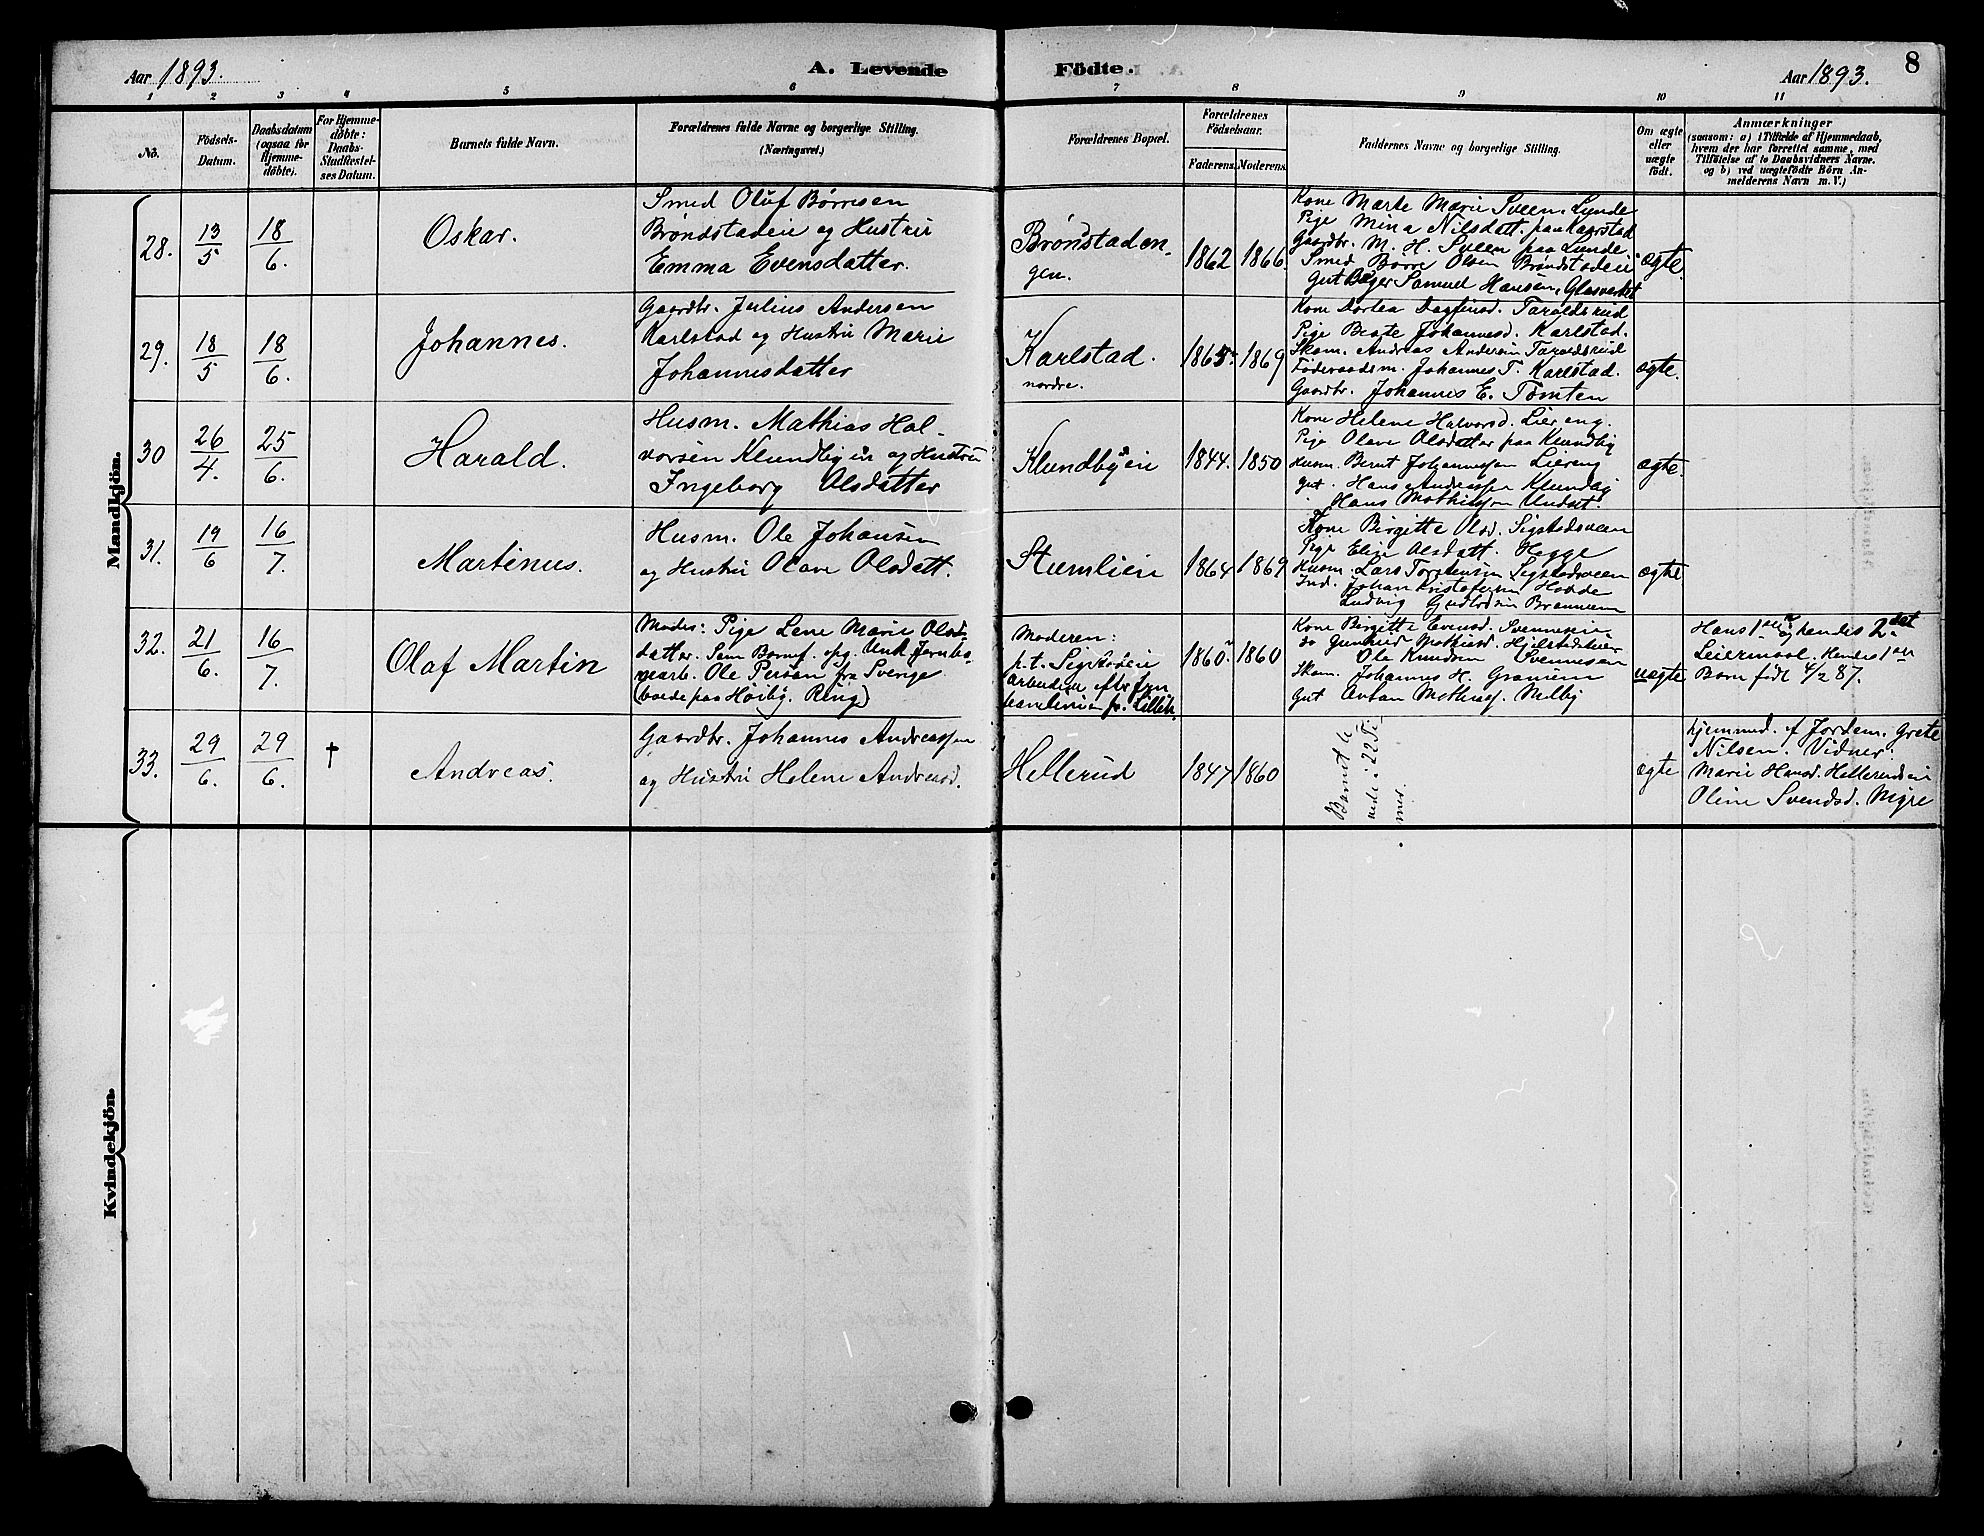 Aar 1893.
A. Levende
Födte.
Aar 1893.
8
1 2 3 4 5 6 7 8 9 10 11
No.
Födsels-
Datum.
Daabsdatum
(ogsaa for
Hjemme-
døbte).
For Hjemme-
døbte:
Daabs-
Stadfæstel-
ses Datum.
Barnets fulde Navn.
Forældrenes fulde Navne og borgerlige Stilling.
(Næringsvei.)
Forældrenes Bopæl.
Forældrenes
Födselsaar.
Faderens.
Moderens.
Faddernes Navne og borgerlige Stilling.
Om ægte
eller
uægte
født.
Anmærkninger
(saasom: a) i Tilfælde af Hjemmedaab,
hvem der har forrettet samme, med
Tilföielse af to Daabsvidners Navne.
og b) ved uægtefödte Börn An-
melderens Navn m. V.)
Mandkjön.
28.
13/5
18/6.
Oskar.
Smed Oluf Børresen
Brøndstadeie og Hustru
Emma Evensdatter.
Brønstaden-
gen.
1862
1866.
Kone Marte Marie Sveen, Lunde
Pige Mina Nilsdatt. paa Kaarstad
Gaardbr. M. H. Sveen paa Lunde
Smed Børre Olsen Brøndstadeie
gut Samuel Hansen, Glasværket
ægte.
29.
18/5
18/6.
Johannes.
Gaardbr. Julius Andersen
Karlstad og Hustru Marie
Johannesdatter
Karlstad.
nordre.
1865
1869
Kone Dortea Dagfinsd. Taraldsrud
Pige Beate Johannesd. Karlstad.
Skom. Andreas Andersen Taraldsrud
Föderaadsm. Johannes T. Karlstad.
Gaardbr. Johannes E. Tomten
ægte.
30
26/4.
25/6.
Harald.
Husm. Mathias Hal-
vorsen Klundbyeie og Hustru
Ingeborg Olsdatter
Klundbyeie
1844.
1850
Kone Helene Halvorsd. Liereng.
Pige Olave Olsdatter paa Klundby
Husm. Bernt Johannessen Liereng
gut. Hans Andreassen Klundby
Hans Mathiassen Undset.
ægte.
31.
19/6
16/7.
Martinus.
Husm. Ole Johansen
og Hustru Olave Olsdatt.
Stumlien
1864
1869
Kone Birgitte Olsd. Sigstadsveen
Pige Elise Olsdatt. Hegge
Husm. Lars Torstensen Sigstadsveen
Ind. Johan Kristofersen
Ludvig
ægte
32.
21/6.
16/7.
Olaf Martin
Moder: Pige Lene Marie Ols-
datter. Som Barnef. opg. Unk. Jernba-
nearb. Ole Persan fra Sverige
(boede paa Høiby. Ring)
Moderen:
p.t. Sigstadeie
arbeidende efter Jern
banelinien
1860
1860
Kone Birgitte Evensd. Svenneseie
do Gunhild Mathiasd. Hjelstadeie
Ole Knudsen Svennesen
Skom. Johannes H. Granum
gut Anton Mathias. Melby
uægte
Hans 1ste og hendes 2det
Leiermaal. Hendes 1ste
Barn født 4/2 87.
33.
29/6.
29/6.
†
Andreas.
Gaardbr. Johannes Andreassen
og Hustru Helene Andreasd.
Hellerud
1847
1860
Barnet le
vede i 22 Ti-
mer.
ægte
hjemmed. af Jordem. Grete
Nilsen. Vidner:
Marie Hansd. Hellerudeie
Oline Svendsd. Myre
Kvindekjön.